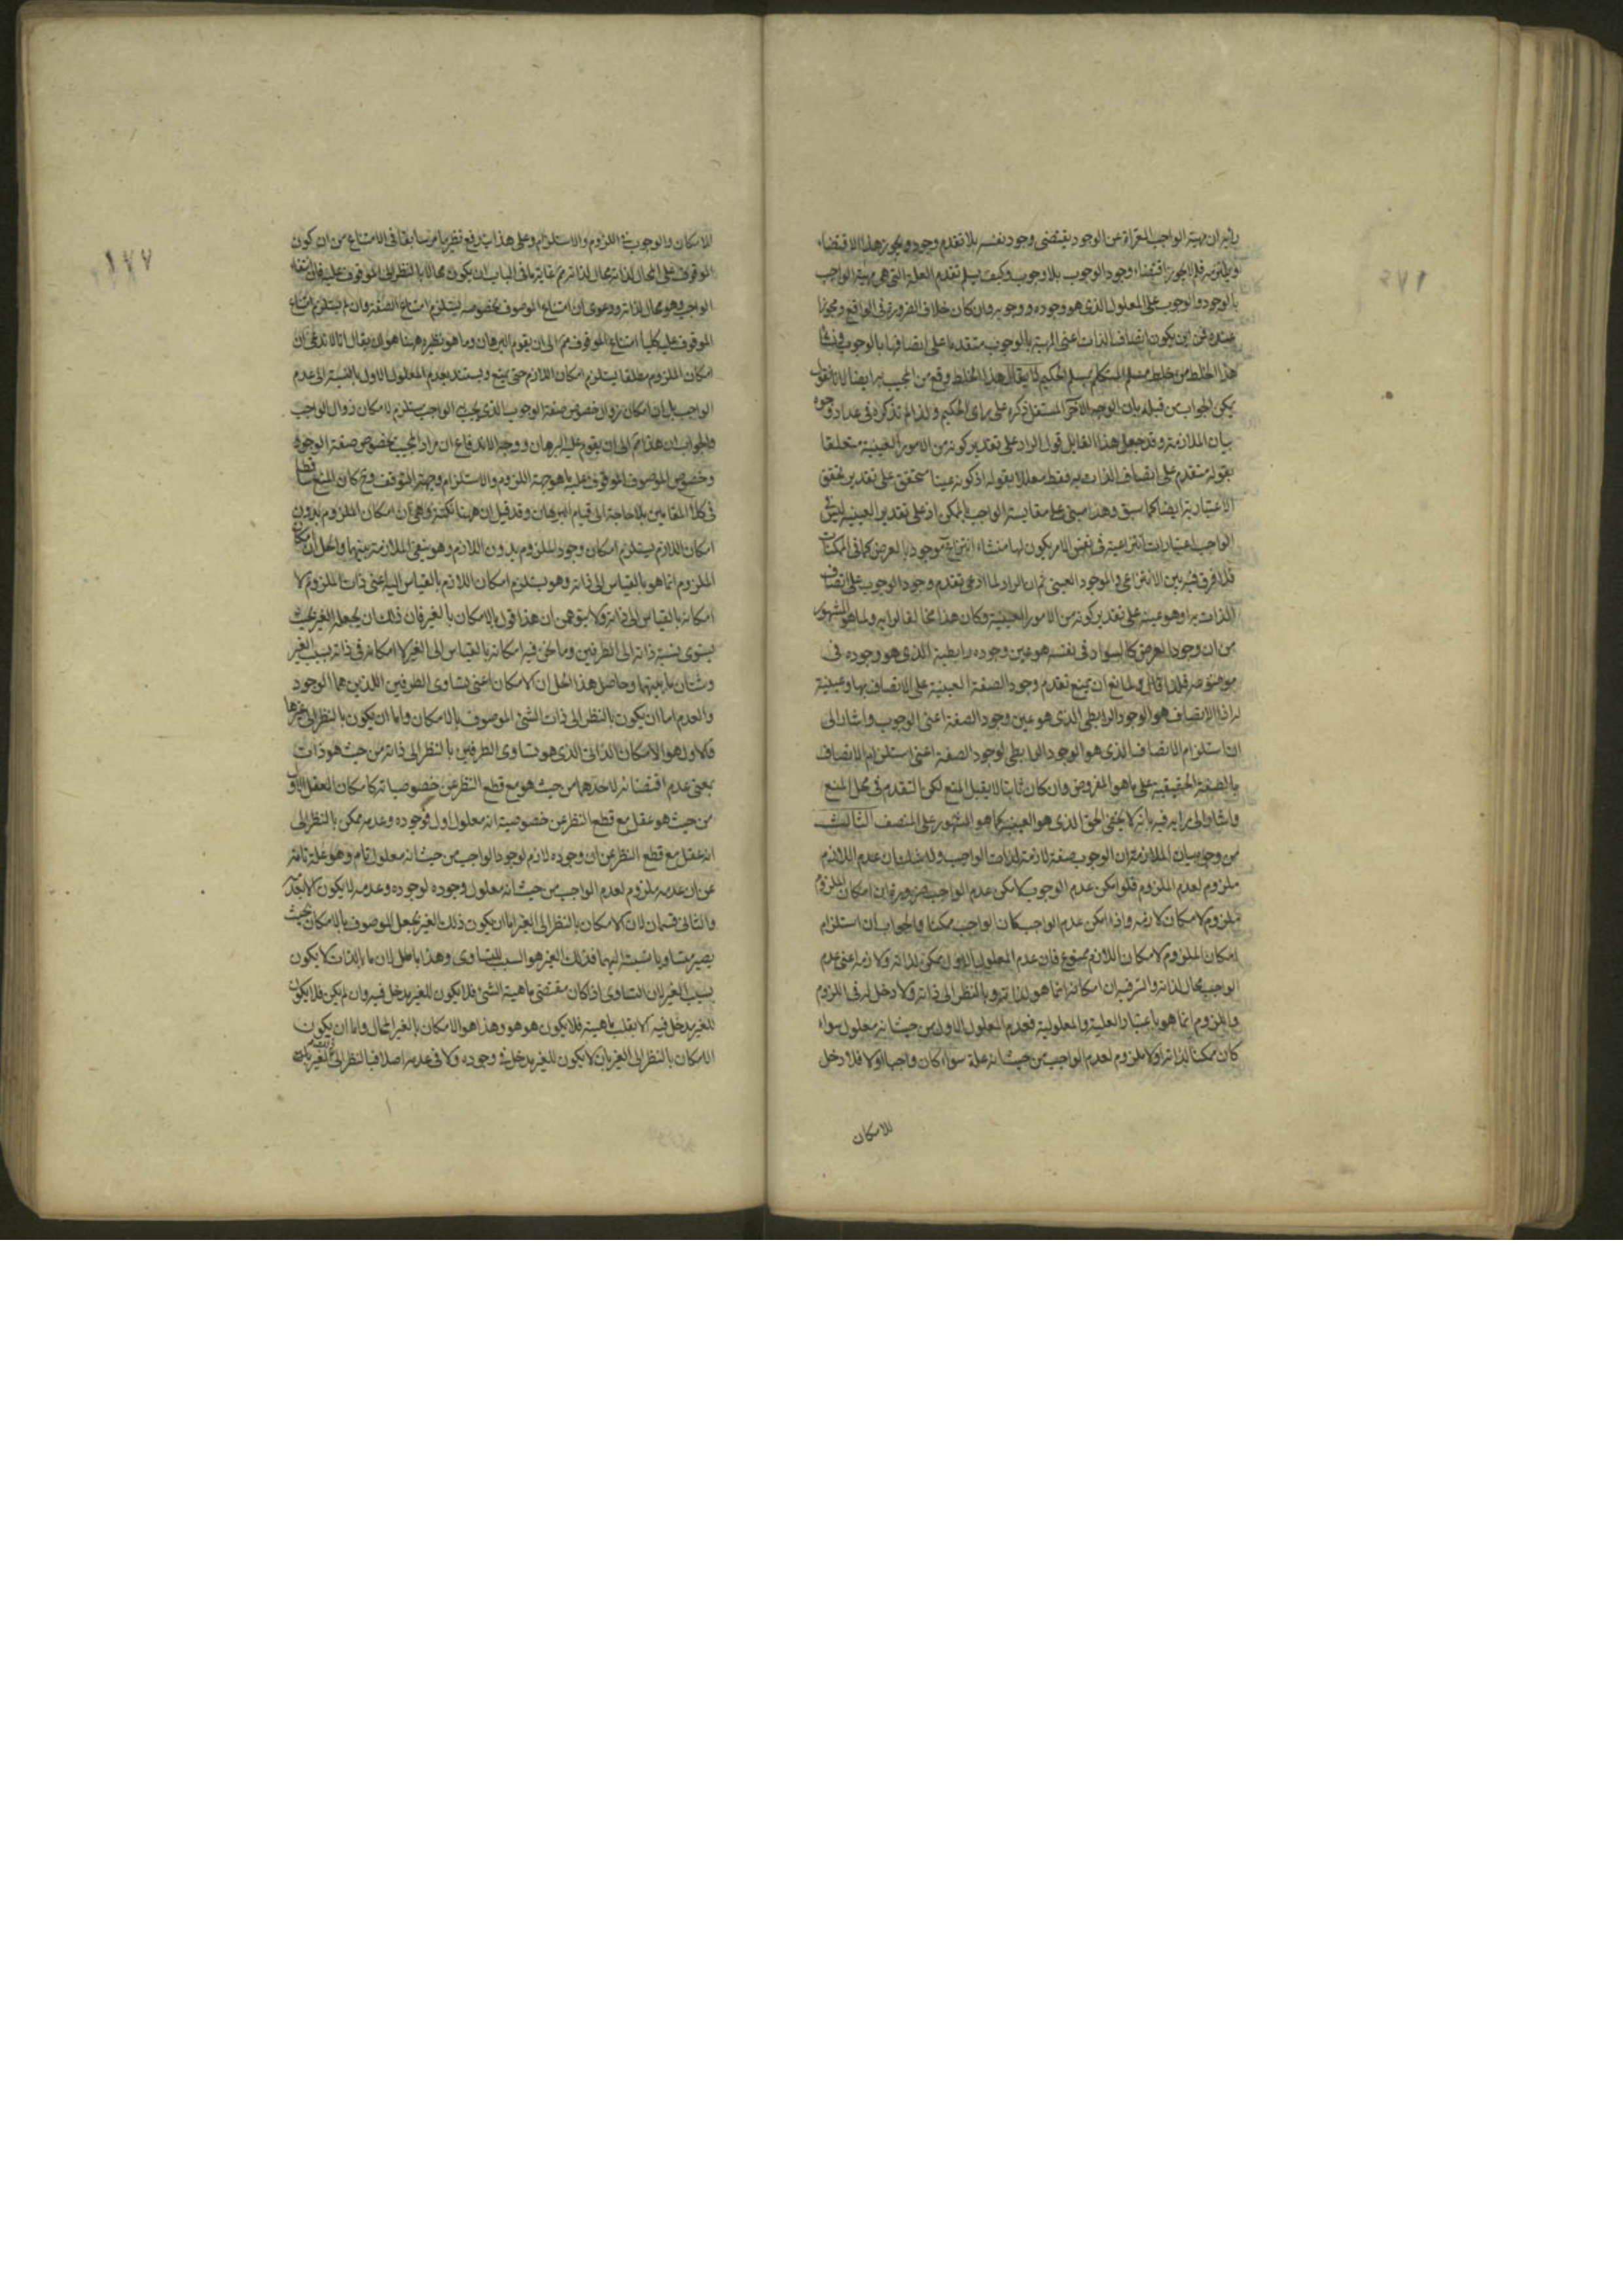 رايه ان مهية الواجب المعراة عن الوجود يقتضى وجود نفسه بلا تقدم وجود ويجوز هذا الاقتضاء
فلم لا يجوز اقتضاء وجود الوجوب بلا وجوب وكيف يسلم تقدم العلة التى هى مهية الواجب
بالوجود والوجوب على المعلول الذى هو وجوده ووجوبه وان كان خلاف الضرورة فى الواقع ومجوزا
عنده فمن اين يكون اتصاف الذات اعنى المهية بالوجوب متقدما على اتصافها بالوجوب
هذا الخلط من خلط مسلم المتكلم بمسلم الحكيم لا يقال هذا الخلط وقع من المجيب ايضا لانا نقول
يمكن الجواب من قبله بان الوجه الآخر المستقل ذكره على راى الحكيم ولذا لم تذكره فى عداد وجوه
بيان الملازمة وقد جعل هذا القايل قول الراد على تقدير كونه من الامور العينية متعلقا
بقوله متقدم على اتصاف الذات به فقط معللا بقوله اذ كونه عينا متحقق على تقدير تحقق
الاعتبارية ايضا كما سبق وهذا مبنى على مقايسة الواجب بالممكن اذ على تقدير العينية ليس فى
الواجب اعتبارات انتزاعية فى نفس الامر يكون لها منشاء انتزاع موجود بالعرض كما فى الممكنات
فلا فرق فيه بين الانتزاعى والموجود العينى ثم ان الراد لما ادعى تقدم وجود الوجوب على اتصاف
الذات به وهو عينه على تقدير كونه من الامور العينية وكان هذا مخالفا لرايه ولما هو المشهور
من ان وجود العرض كالسواد فى نفسه هو عين وجوده رابطية الذى هو وجوده فى
موضوعه فلذا قال ولمانع ان يمنع تقدم وجود الصفة العينية على الاتصاف بها وعينية
اذ الاتصاف هو الوجود الرابطى الذى هو عين وجود الصفة اعنى الوجوب واشار الى
ان استلزام الاتصاف الذى هو الوجود الرابطى لوجود الصفة اعنى استلزام الاتصاف
بالصفة الحقيقية على ما هو المفروض وان كان ثابتا لا يقبل المنع لكن التقدم فى محل المنع
واشار الى رايه فيه بانه لا يخفى الحق الذى هو العينية كما هو المشهور على المنصف الثالث
من وجوه بيان الملازمة ان الوجوب صفة لازمة لذات الواجب ولا شك ان عدم اللازم
ملزوم لعدم الملزوم فلو امكن عدم الوجوب لامكن عدم الواجب ضرورة ان امكان الملزوم
ملزوم لامكان لازمه واذا امكن عدم الواجب كان الواجب ممكنا والجواب ان استلزام
امكان الملزوم لامكان اللازم ممنوع فان عدم المعلول الاول ممكن لذاته ولازمه اعنى عدم
الواجب محال لذاته والسر فيه ان امكانه انما هو لذاته وبالنظر الى ذاته ولا دخل له فى اللزوم
والملزوم انما هو باعتبار العلية والمعلولية فعدم المعلول الاول من حيث انه معلول سواء
كان ممكنا لذاته او لا ملزوم لعدم الواجب من حيث انه علة سواء كان واجبا او لا فلا دخل
للامكان
١٧٧
للامكان والوجوب فى اللزوم والاستلزام وعلى هذا يندفع نظير ما مر سابقا فى الامتناع من ان كون
الموقوف على المحال لذاته محال لذاته غاية ما فى الباب ان يكون محالا بالنظر الى الموقوف عليه فان انتفاء
الواجب وهو محال لذاته ودعوى ان امتناع الموصوف بخصوصه يستلزم امتناع الصفة وان لم يستلزم امتناع
الموقوف عليه كليا امتناع الموقوف ممم الى ان يقوم البرهان وما هو نظيره ههنا هو ان يقال انا لا ندعى ان
امكان الملزوم مطلقا يستلزم امكان اللازم حتى يمنع ويستند بعدم المعلول الاول بالنسبة الى عدم
الواجب بل ان امكان زوال خصوص صفة الوجوب الذى يجب الواجب يستلزم لامكان زوال الواجب
والجواب ان هذا ممم الى ان يقوم عليه البرهان ووجه الاندفاع ان مراد المجيب بخصوص صفة الوجود
وخصوص الموصوف الموقوف عليه ما هو جهة اللزوم والاستلزام وجهة التوقف وح كان المنع ساقطا
فى كلا المقامين بلا حاجة الى قيام البرهان وقد قيل ان ههنا نكتة وهى ان امكان الملزوم بدون
امكان اللازم يستلزم امكان وجود الملزوم بدون اللازم وهو ينفى الملازمة بينهما والحل ان امكان
الملزوم انما هو بالقياس الى ذاته وهو يستلزم امكان اللازم بالقياس اليه اعنى ذات الملزوم لا
امكانه بالقياس الى ذاته ولا يتوهمن ان هذا قول بالامكان بالغير فان ذلك ان يجعله الغير بحيث
يستوى نسبة ذاته الى الطرفين وما نحن فيه امكانه بالقياس الى الغير لا امكانه فى ذاته بسبب الغير
وشتان ما بينهما وحاصل هذا الحل ان الامكان اعنى تساوى الطرفين اللذين هما الوجود
والعدم اما ان يكون بالنظر الى ذات الشئ الموصوف بالامكان واما ان يكون بالنظر الى غيرها
فالاول هو الامكان الذاتى الذى هو تساوى الطرفين بالنظر الى ذاته من حيث هو ذات
بمعنى عدم اقتضائه لاحدهما من حيث هو مع قطع النظر عن خصوصياته كامكان العقل الاول
من حيث هو عقل مع قطع النظر عن خصوصية انه معلول اول فوجوده وعدمه ممكن بالنظر الى
انه عقل مع قطع النظر عن ان وجوده لازم لوجود الواجب من حيث انه معلول تام وهو علة تامة
عن ان عدمه ملزوم لعدم الواجب من حيث انه معلول وجوده لوجوده وعدمه لا يكون الا بعدمه
والثانى قسمان لان الامكان بالنظر الى الغير اما ان يكون ذلك الغير يجعل الموصوف بالامكان بحيث
يصير متساويا نسبته اليهما فذلك الغير هو السبب للتساوى وهذا باطل لان ما بالذات لا يكون
بسبب الغير لان التساوى اذا كان مقتضى ماهية الشئ فلا يكون للغير مدخل فيه وان لم يكن فلا يكون
للغير مدخل فيه والا يقلب ماهيته فلا يكون هو هو وهذا هو الامكان بالغير المحال واما ان يكون
الامكان بالنظر الى الغير بان لا يكون للغير مدخل فى وجوده ولا فى عدمه اصلا فبالنظر الى الغير